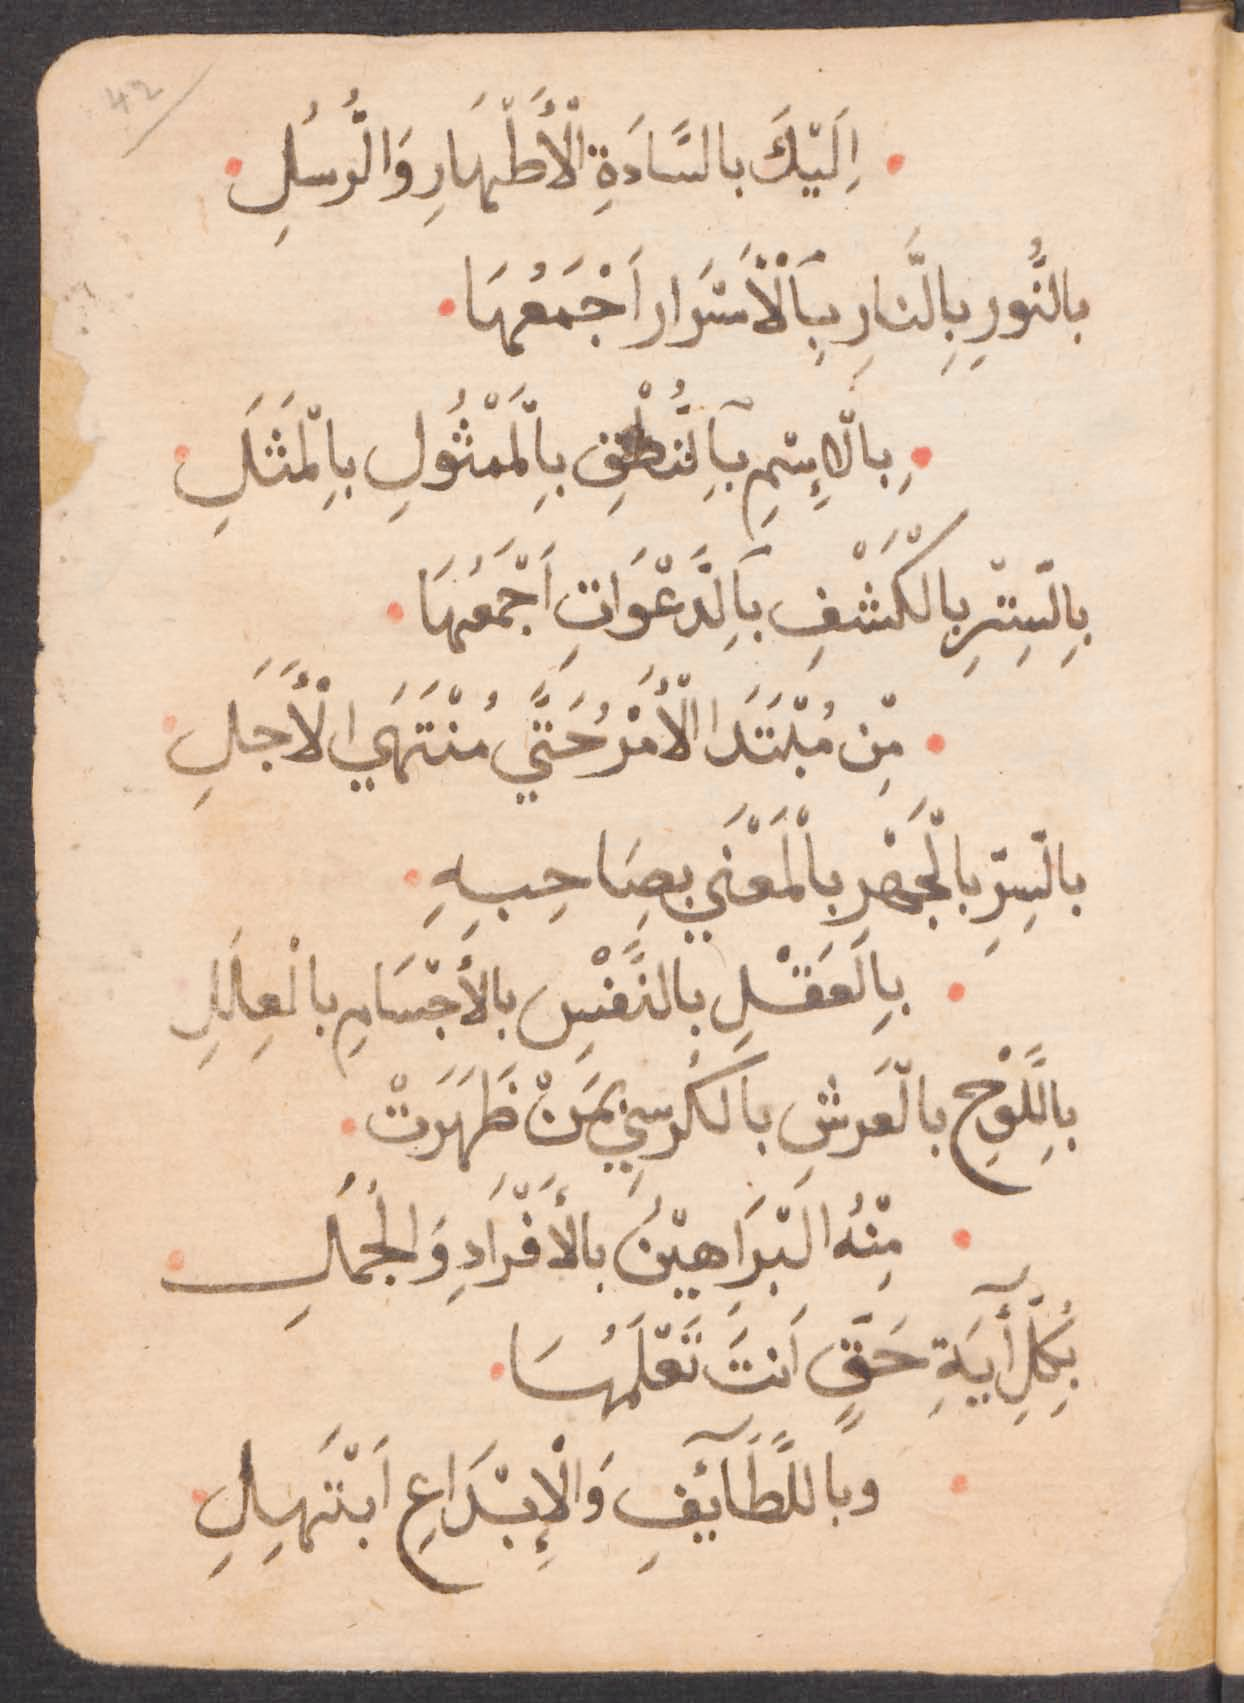 42
اِلَيْكَ بالسَّادَةِ الْأَطْهَارِ وَالرُّسُلِ
بالنُّورِ بِالنَّارِ بِالْأَسْرَار اَجْمَعُهَا
بِالْاِسْمِ بِالنُّطْقِ بِالْمَمْثُولِ بِالْمَثَلِ
بِالسِّتْرِ بالْكَشْفِ بِالدَّعْوَاتِ اَجْمَعُهَا
مِّن مُبْتَدَا الْأَمْرُ حَتَّي مُنْتَهَي الْأَجَلِ
بالسِرِّ بالْجَهْرِ بالْمَعْنَي بصَاحِبِهِ
بِالَعَقْلِ بالنَّفْسِ بالأَجْسَامِ بالْعِلَلِ
بِاللَّوْحِ بالْعَرشِ بالكُرسِي بمَنْ ظَهَرَتْ
مِنْهُ الَبْرَاهِيْنُ بالأَفْرَادِ وَالجُمَلِ
بِكُلِّ أَيَةِ حَقٍّ اَنتَ تَعْلَمُهَا
وباللَّطَآئِفِ وَالْإِبْدَاعِ اَبْتَهِلِ